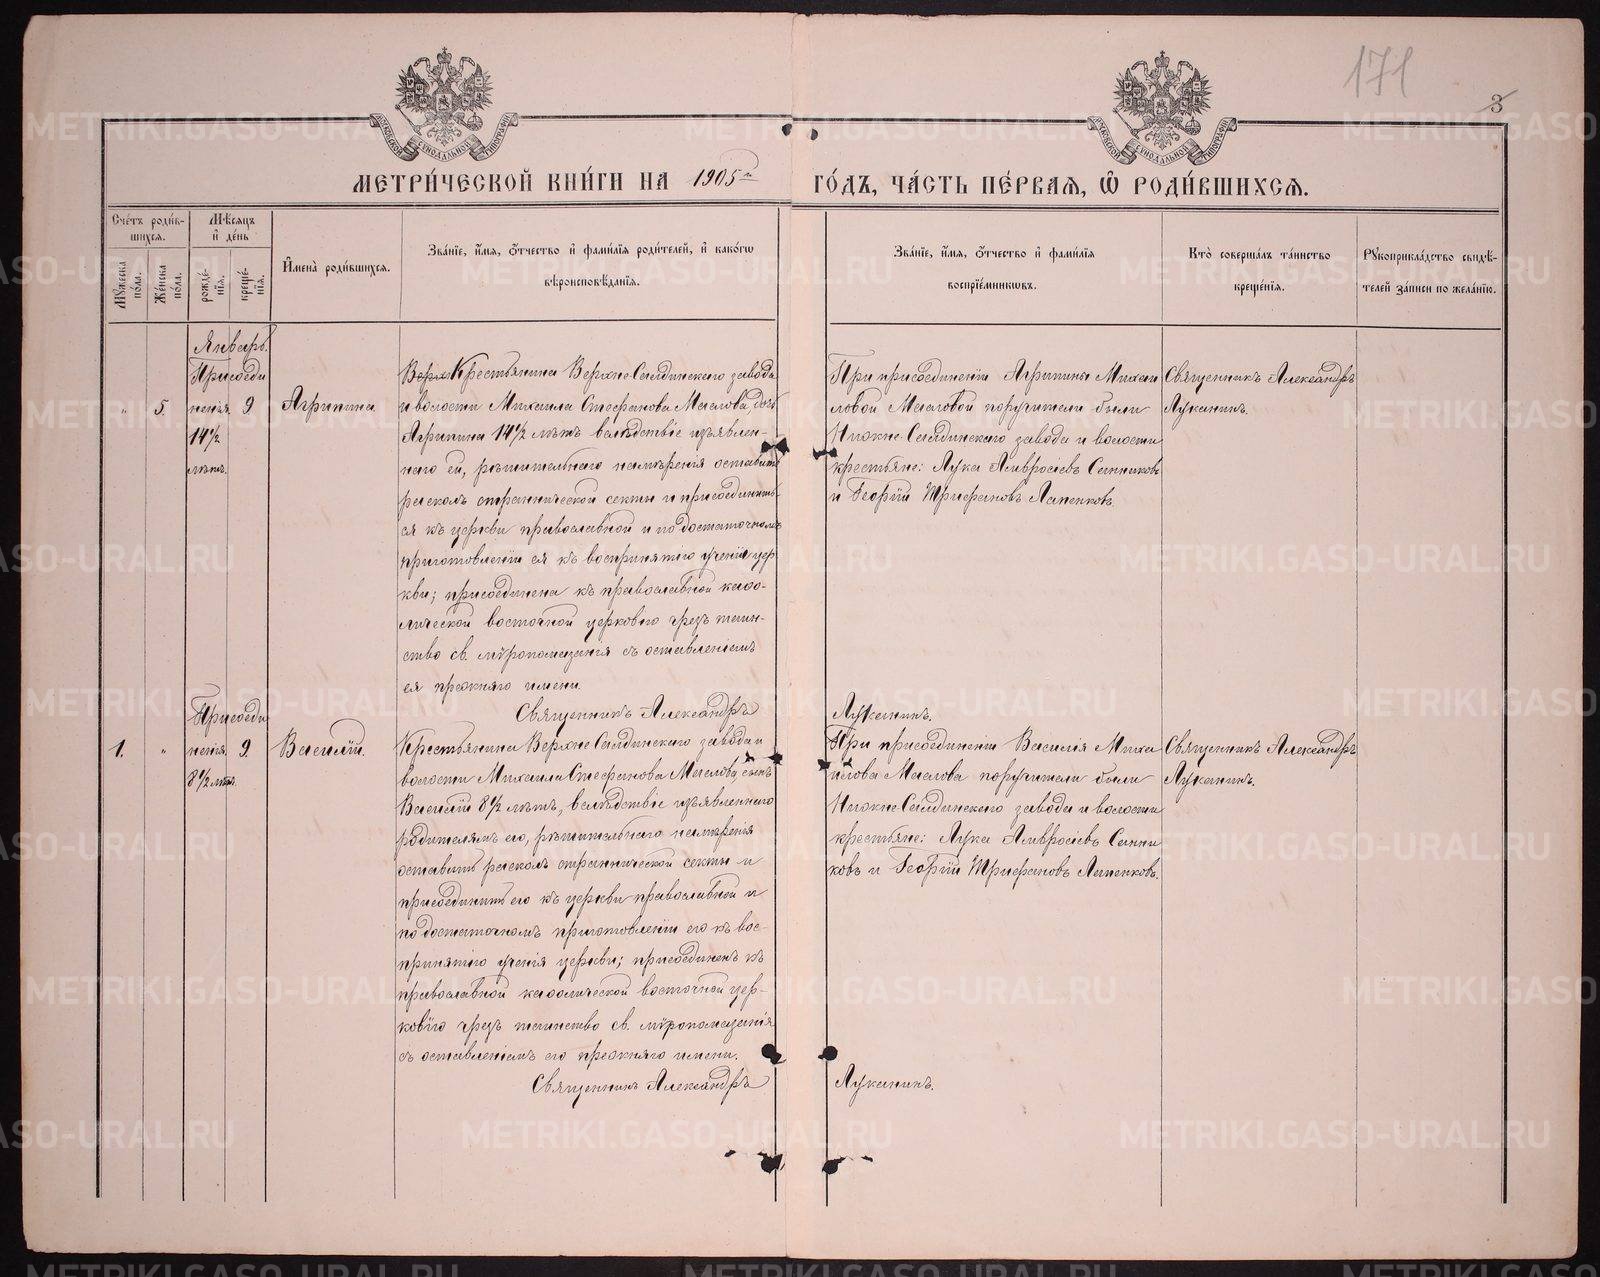 171
3
МЕТРИ́ЧЕСКОЙ КНИ́ГИ НА 1905й ГО́ДЪ, ЧА́СТЬ ПЕ́РВАЯ, Ѽ РОДИ́ВШИХСЯ.
Сче́тъ роди́в-
шихся.
Мѣ́сяцъ
и҆ де́нь
Мꙋ́жеска по́ла.
Же́нска по́ла.
рожде́-
нїѧ.
креще́-
нїѧ.
И҆мена̀ роди́вшихся.
Зва́нїе, и҆́мя, ѻ҆́тчество и҆ фами́лїя роди́телей, и҆ како́гѡ
вѣроисповѣ́данїя.
Зва́нїе, и҆́мя, ѻ҆́тчество и҆ фами́лїя
воспрїе́мникѡвъ.
Кто̀ соверша́лъ та́инство
креще́нїя.
Рꙋкоприкла́дство свидѣ́-
телей за́писи по жела́нїю.
Январь.
Присоеди
ненія. 9
14½
лѣтъ.
"
5.
Агрипина
Верхне Крестьянина Верхне-Салдинскаго завода
и волости Михаила Стефанова Масалова дочь
Агрипина 14½ лѣтъ вслѣдствіе изъявлен-
наго ей, рѣшительнаго намѣренія оставить
расколъ страннической секты и присоединить-
ся къ церкви православной и по достаточномъ
приготовленіи ея къ воспринятію ученія цер
кви; присоединена къ православной каѳо-
лической восточной церковію чрезъ таин-
ство св. мѵропомазанія съ оставленіемъ
ея прежняго имени.
Священникъ Александръ Луканинъ.
При присоединеніи Агрипины Михаи
ловой Масаловой поручители были
Нижне-Салдинскаго завода и волости
крестьяне: Лука Амвросіевъ Санниковъ
и Георгій Трифановъ Лапенковъ.
Священникъ Александръ
Луканинъ.
Присоеди
ненія. 9
8½ лѣтъ.
1.
"
Василій.
Крестьянина Верхне-Салдинскаго завода и
волости Михаила Стефанова Масалова сынъ
Василій 8½ лѣтъ, вслѣдствіе изъявленнаго
родителямъ его, рѣшительнаго намѣренія
оставить расколъ страннической секты и
присоединить его къ церкви православной и
по достаточномъ приготовленіи его къ вос-
принятію ученія церкви; присоединенъ къ
православной каѳолической восточной цер-
ковію чрезъ таинство св. мѵропомазанія
съ оставленіемъ его прежняго имени.
Священникъ Александръ Луканинъ.
При присоединеніи Василія Миха
илова Масалова поручители были
Нижне-Салдинскаго завода и волости
крестьяне: Лука Амвросіевъ Санни
ковъ и Георгій Трифановъ Лапенковъ.
Священникъ Александръ
Луканинъ.
METRIKI.GASO-URAL.RU